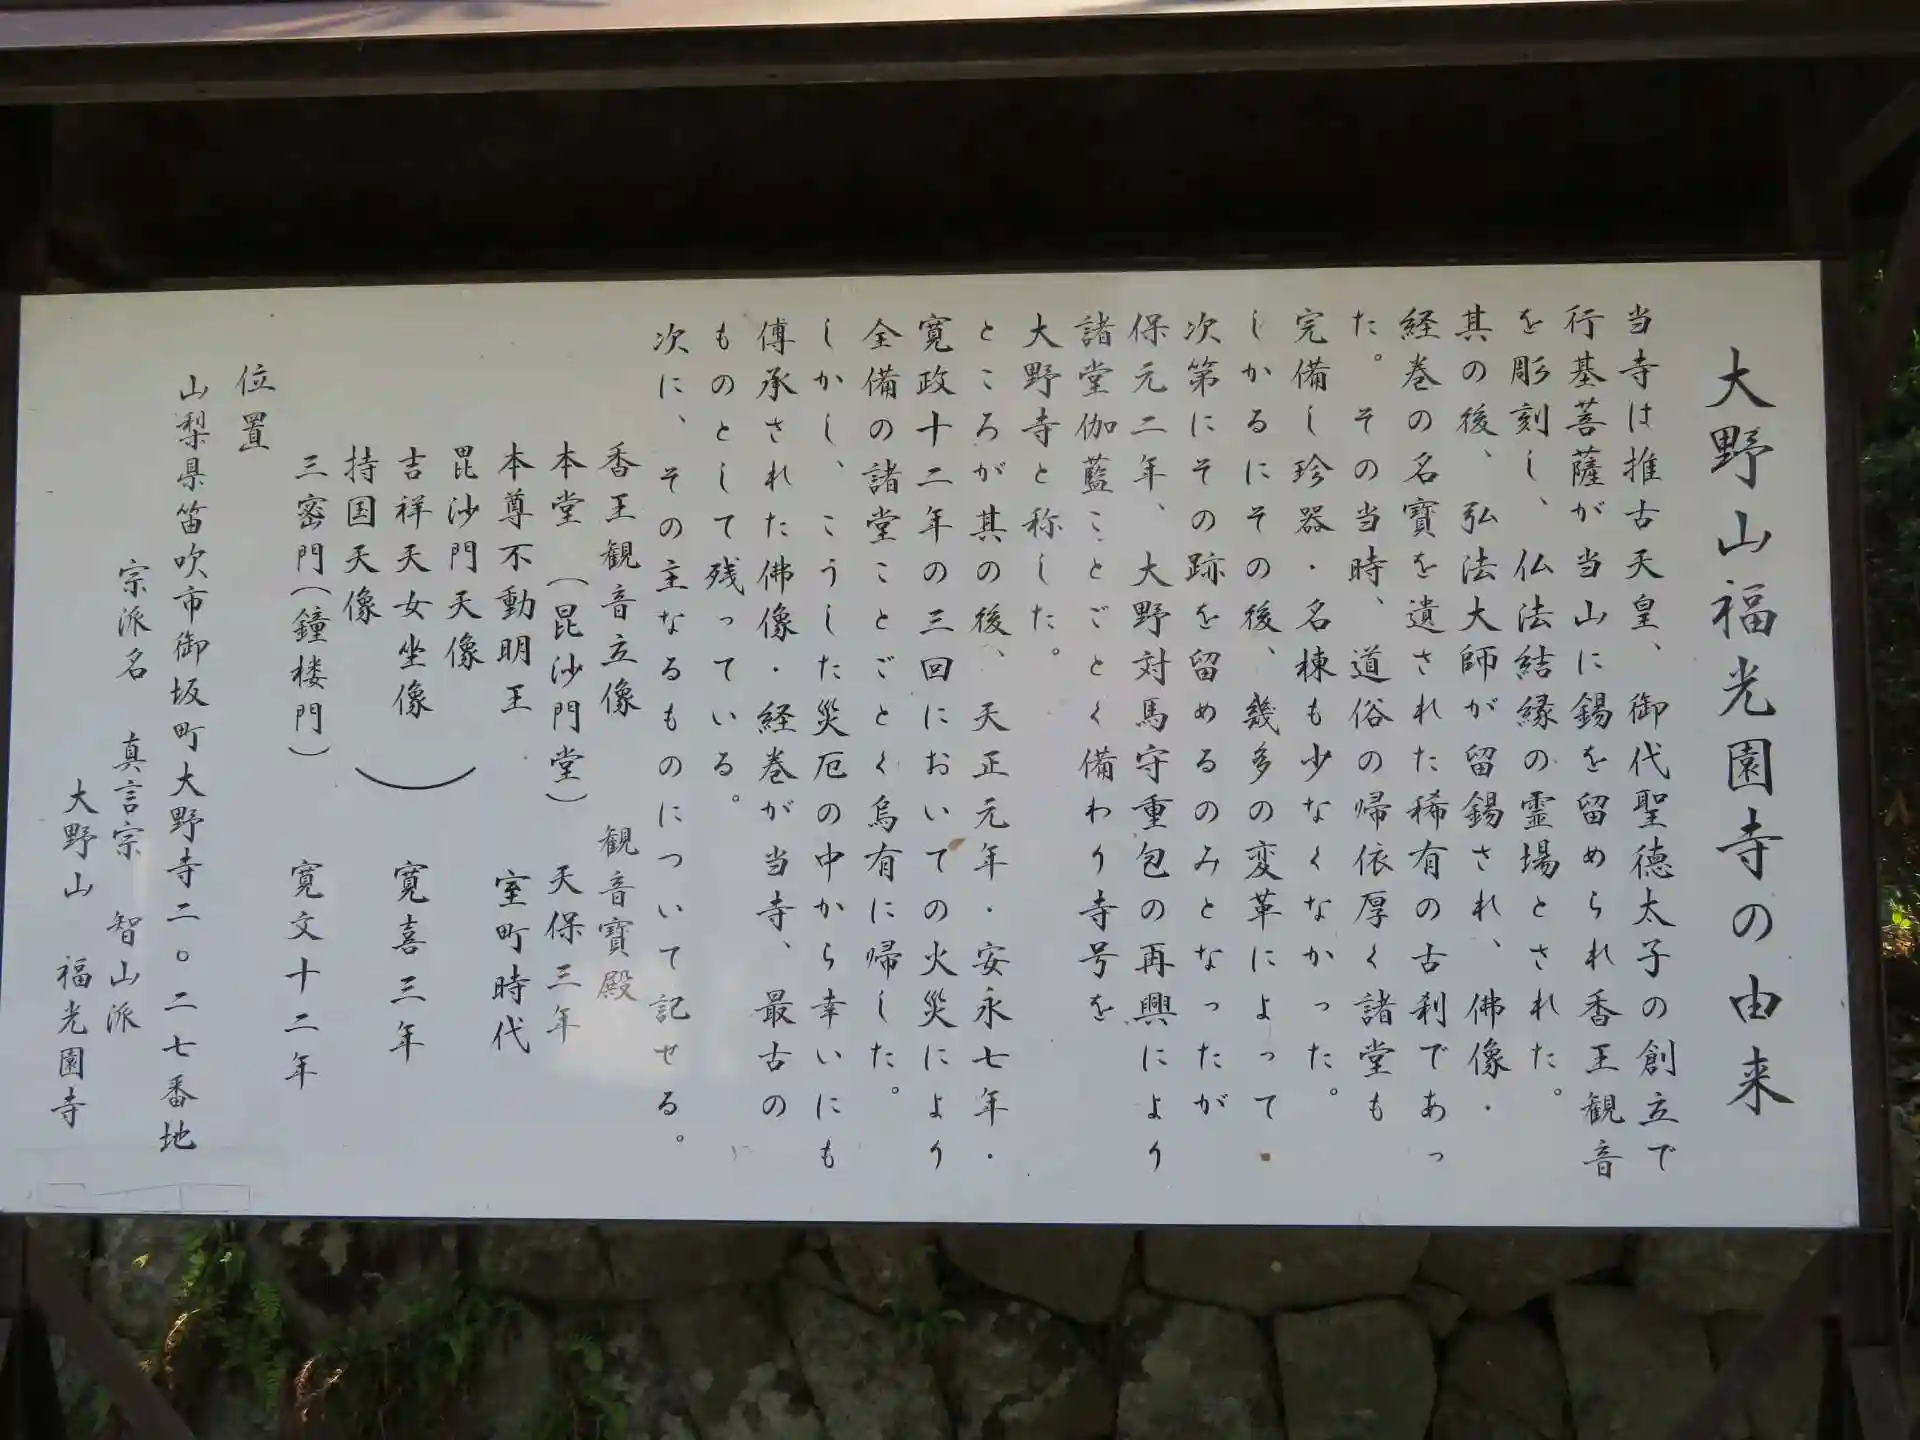 大野山福光園寺の由来
当寺は推古天皇、御代聖徳太子の創立で
行基菩薩が当山に錫を留められ香王観音
を彫刻し、仏法結縁の霊場とされた。
其の後、弘法大師が留錫され、佛像・
経巻の名寶を遺された稀有の古刹であっ
た。その当時、道俗の帰依厚く諸堂も
完備し珍器・名棟も少なくなかった。
しかるにその後、幾多の変革によって・
次第にその跡を留めるのみとなったが
保元二年、大野対馬守重包の再興により
諸堂伽藍ことごとく備わり寺号を
大野寺と称した。
ところが其の後、天正元年・安永七年・
寛政十二年の三回においての火災により
全備の諸堂ことごとく烏有に帰した。
しかし、こうした災厄の中から幸いにも
傅承された佛像・経巻が当寺、最古の
ものとして残っている。
次に、その主なるものについて記せる。
香王観音立像 観音寶殿
本堂（毘沙門堂） 天保三年
本尊不動明王 室町時代
毘沙門天像
吉祥天女坐像 寛喜三年
持国天像
三密門（鐘楼門） 寛文十二年
位置
山梨県笛吹市御坂町大野寺二〇二七番地
宗派名 真言宗 智山派
大野山 福光園寺